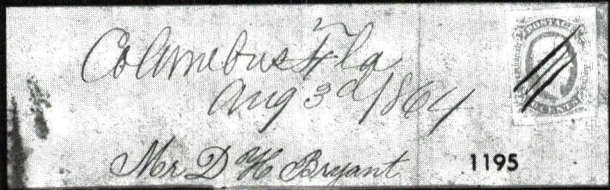 Columbus Fla
Aug 3d 1864
Mr D H Bryant
1195